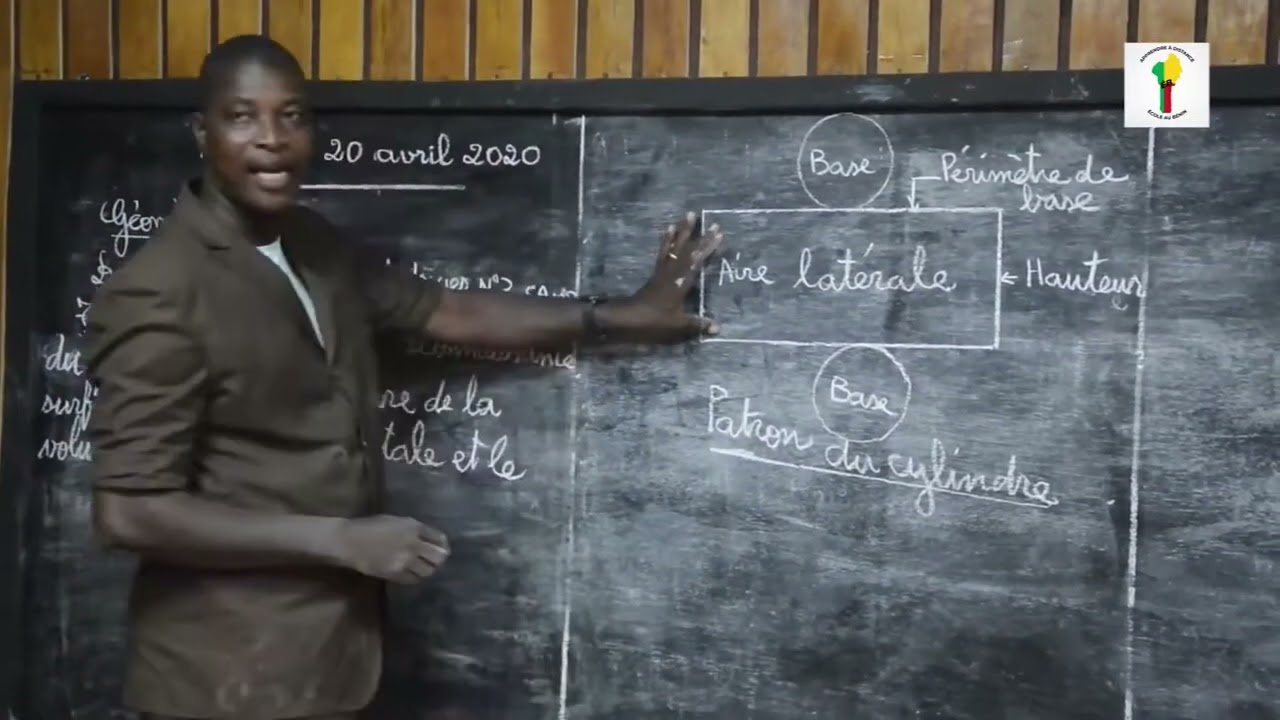 20 avril 2020
du
surf
re de la
volu
tale et le
Base
Périmètre de
base
Aire latérale
← Hauteur
Base
Patron du cylindre
APPRENDRE À DISTANCE
ÉCOLE AU BÉNIN